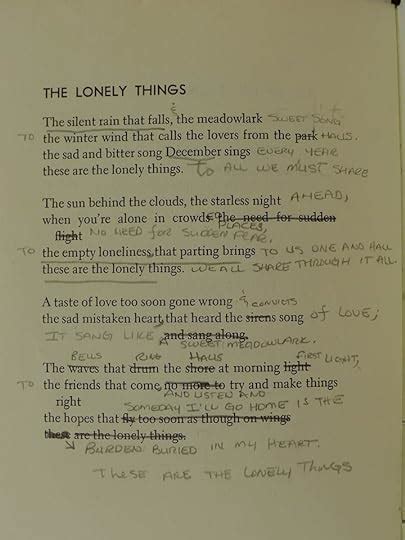 THE LONELY THINGS
&
The silent rain that falls, the meadowlark SWEET SONG
TO the winter wind that calls the lovers from the park HALLS.
the sad and bitter song December sings EVERY YEAR
these are the lonely things. TO ALL WE MUST SHARE
The sun behind the clouds, the starless night AHEAD,
when you're alone in crowds the need for sudden
PLACES,
flight NO NEED FOR SUDDEN FEAR,
TO the empty loneliness, that parting brings TO US ONE AND HALL
these are the lonely things. WE ALL SHARE THROUGH IT ALL.
A taste of love too soon gone wrong & CONVICTS
the sad mistaken heart, that heard the sirens song of LOVE;
IT SANG LIKE and sang along.
A SWEET MEADOWLARK.
BELLS RING HALLS FIRST LIGHT,
The waves that drum the shore at morning light
TO the friends that come no more to try and make things
right AND LISTEN AND
SOMEDAY I'LL GO HOME IS THE
the hopes that fly too soon as though on wings
these are the lonely things.
BURDEN BURIED IN MY HEART.
THESE ARE THE LONELY THINGS